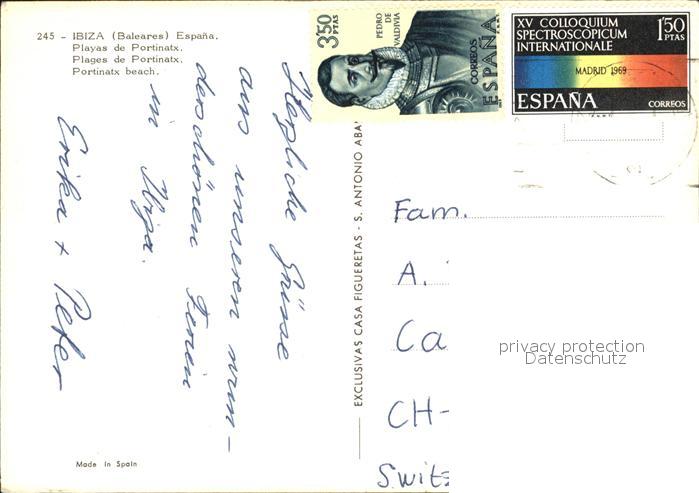 245 - IBIZA (Baleares) España.
Playas de Portinatx.
Plages de Portinatx.
Portinatx beach.
3'50 PTAS
PEDRO DE VALDIVIA
CORREOS
ESPAÑA
XV COLLOQUIUM
SPECTROSCOPICUM
INTERNATIONALE
1'50 PTAS
MADRID 1969
ESPAÑA
CORREOS
Herzliche Grüsse
aus unseren
Ferien
in
Erika + Peter
EXCLUSIVAS CASA FIGUERETAS - S. ANTONIO ABA
Fam.
A.
Ca
CH-
Switz
privacy protection
Datenschutz
Made in Spain